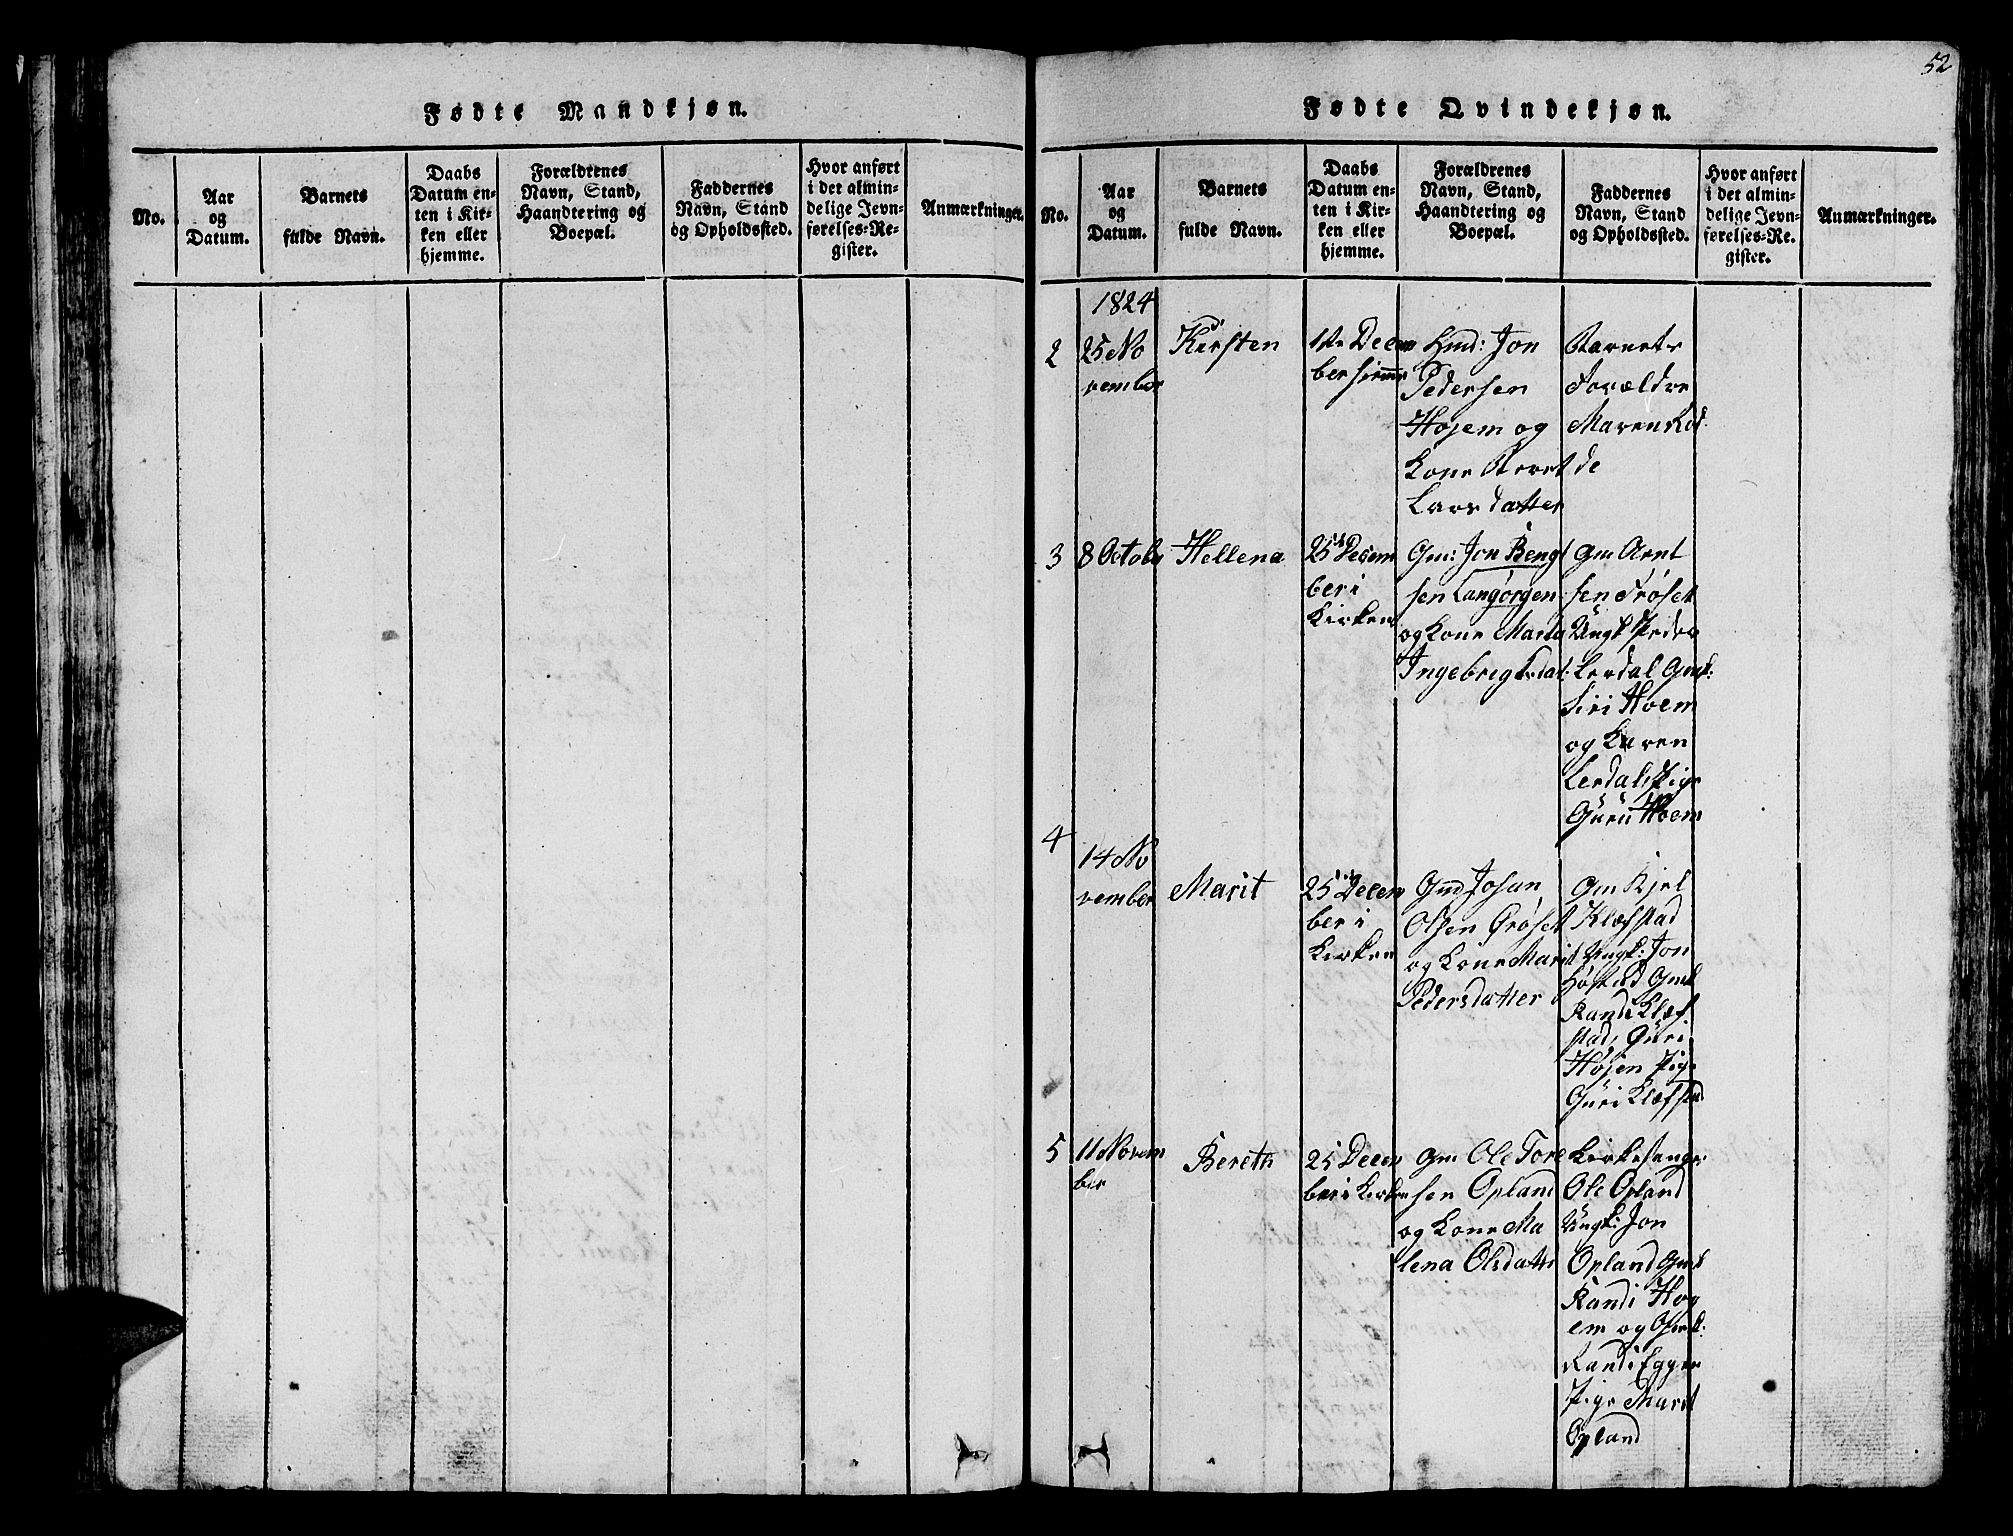 52
Fødte Mandkjøn.
No.
Aar
og
Datum.
Barnets
fulde Navn.
Daabs
Datum en-
ten i Kir-
ken eller
hjemme.
Forældrenes
Navn, Stand,
Haandtering og
Boepæl.
Faddernes
Navn, Stand
og Opholdssted.
Hvor anført
i det almin-
delige Jevn-
førelses-Re-
gister.
Anmærkninger.
Fødte Qvindekjøn.
No.
Aar
og
Datum.
Barnets
fulde Navn.
Daabs
Datum en-
ten i Kir-
ken eller
hjemme.
Forældrenes
Navn, Stand,
Haandtering og
Boepæl.
Faddernes
Navn, Stand
og Opholdssted.
Hvor anført
i det almin-
delige Jevn-
førelses-Re-
gister.
Anmærkninger.
1824
2
25 No
vember
Kirsten
1ste Decem
ber
Hmd: Jon
Pedersen
Højem og
Kone Beret
Larsdatter
Barnets
Forældre
Maren
de
3
8 Octobr
Hellena
25 Decem
ber i
Kirken
Gm: Jon Bengt
sen Langørgen
og Kone Marta
Ingebrigtsdat:
Gm Arnt
sen Frøset
Ungk Peder
Lerdal Gmk:
Siri Hoem
og Karen
Lerdal Pige
Guru Hoem
4
14 No
vember
Marit
25 Decem
ber i
Kirken
Gmd Johan
Olsen Ørøset
og Kone Marit
Pedersdatter
Gm Kjel
Klæfstad
Ungk: Jon
Høstad Gmk
Randi Klæf
stad, Guri
Højen Pige
Guri Klæfstad
5
11 Novem
ber
Bereth
25 Decem
ber i Kirken
Gm Ole Tore
sen Opland
og Kone Ma
lena Olsdatter
Kirkesanger
Ole Opland
Ungk: Jon
Opland Gmk
Randi Hog
em og
Randi Eggen
Pige Marit
Opland